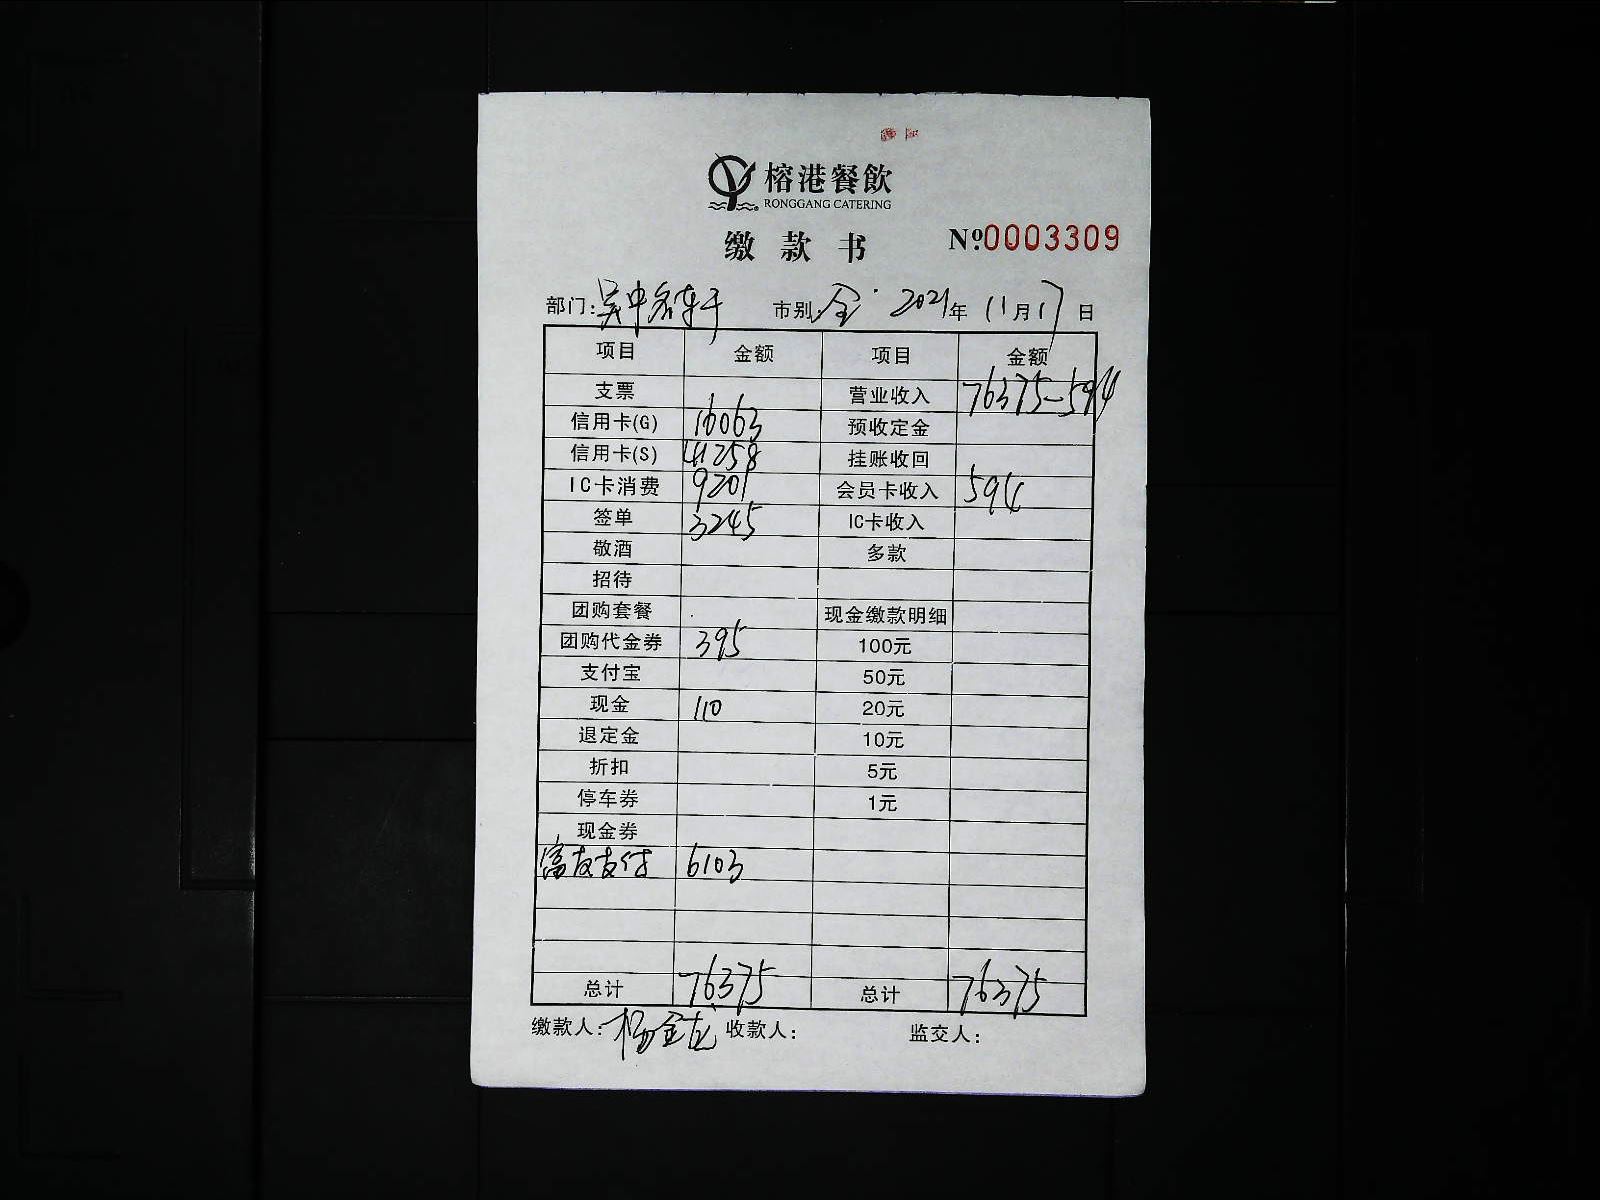 榕港餐飲
RONGGANG CATERING
缴款书 №0003309
部门: 吴中名车于 市别: 全 2021年11月17日
项目 金额 项目 金额
支票 营业收入 76375-594
信用卡(G) 16063 预收定金
信用卡(S) 41258 挂账收回
IC卡消费 9201 会员卡收入 594
签单 3245 IC卡收入
敬酒 多款
招待
团购套餐 现金缴款明细
团购代金券 395 100元
支付宝 50元
现金 110 20元
退定金 10元
折扣 5元
停车券 1元
现金券
富友支付 6103
总计 76375 总计 76375
缴款人: 杨金龙 收款人: 监交人: